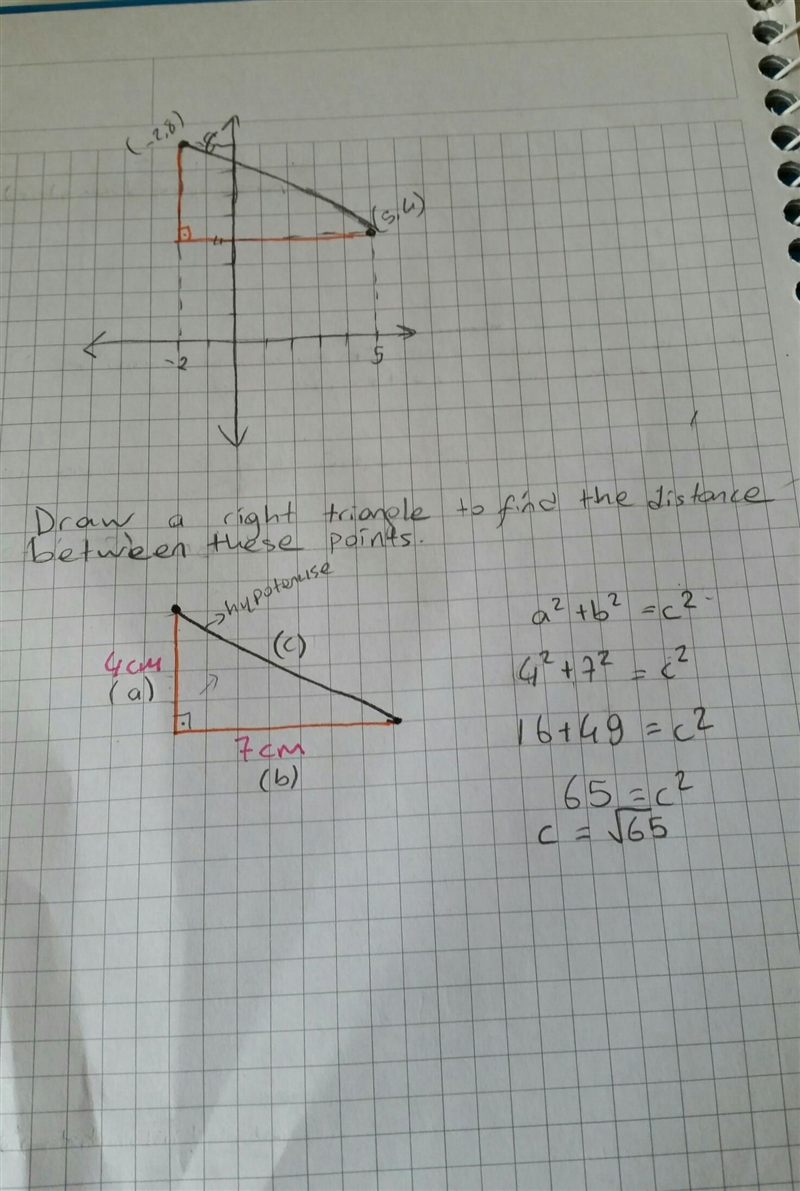 (-2,8)
8
(5,4)
4
-2
5
Draw a right triangle to find the distance
between these points.
hypotenuse
(c)
4cm
(a)
7cm
(b)
a² + b² = c²
4² + 7² = c²
16 + 49 = c²
65 = c²
c = √65